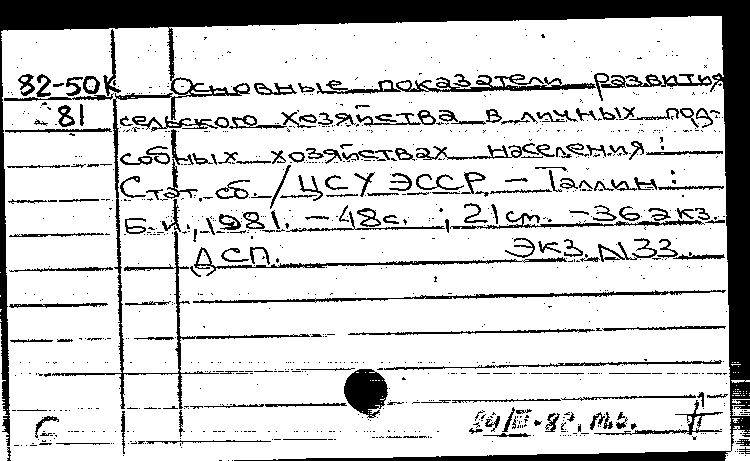 82-50К Основные показатели развития
81 сельского хозяйства в личных под-
собных хозяйствах населения:
Стат. сб. / ЦСУ ЭССР. – Таллин:
Б.и., 1981. – 48с. ; 21 ст. – 36 экз.
ДСП. Экз. N 33.
Б 24/III-82. т.б.